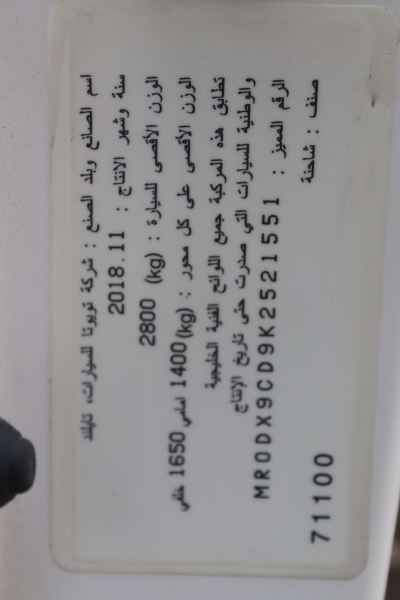 اسم الصانع وبلد الصنع : شركة تويوتا للسيارات، تايلند
سنة وشهر الانتاج : 2018.11
الوزن الأقصى للسيارة : 2800 (kg)
الوزن الأقصى على كل محور : (kg) 1400 امامي 1650 خلفي
تطابق هذه المركبة جميع اللوائح الفنية الخليجية
والوطنية للسيارات التي صدرت حتى تاريخ الإنتاج
الرقم المميز : MR0DX9CD9K2521551
صنف : شاحنة
71100